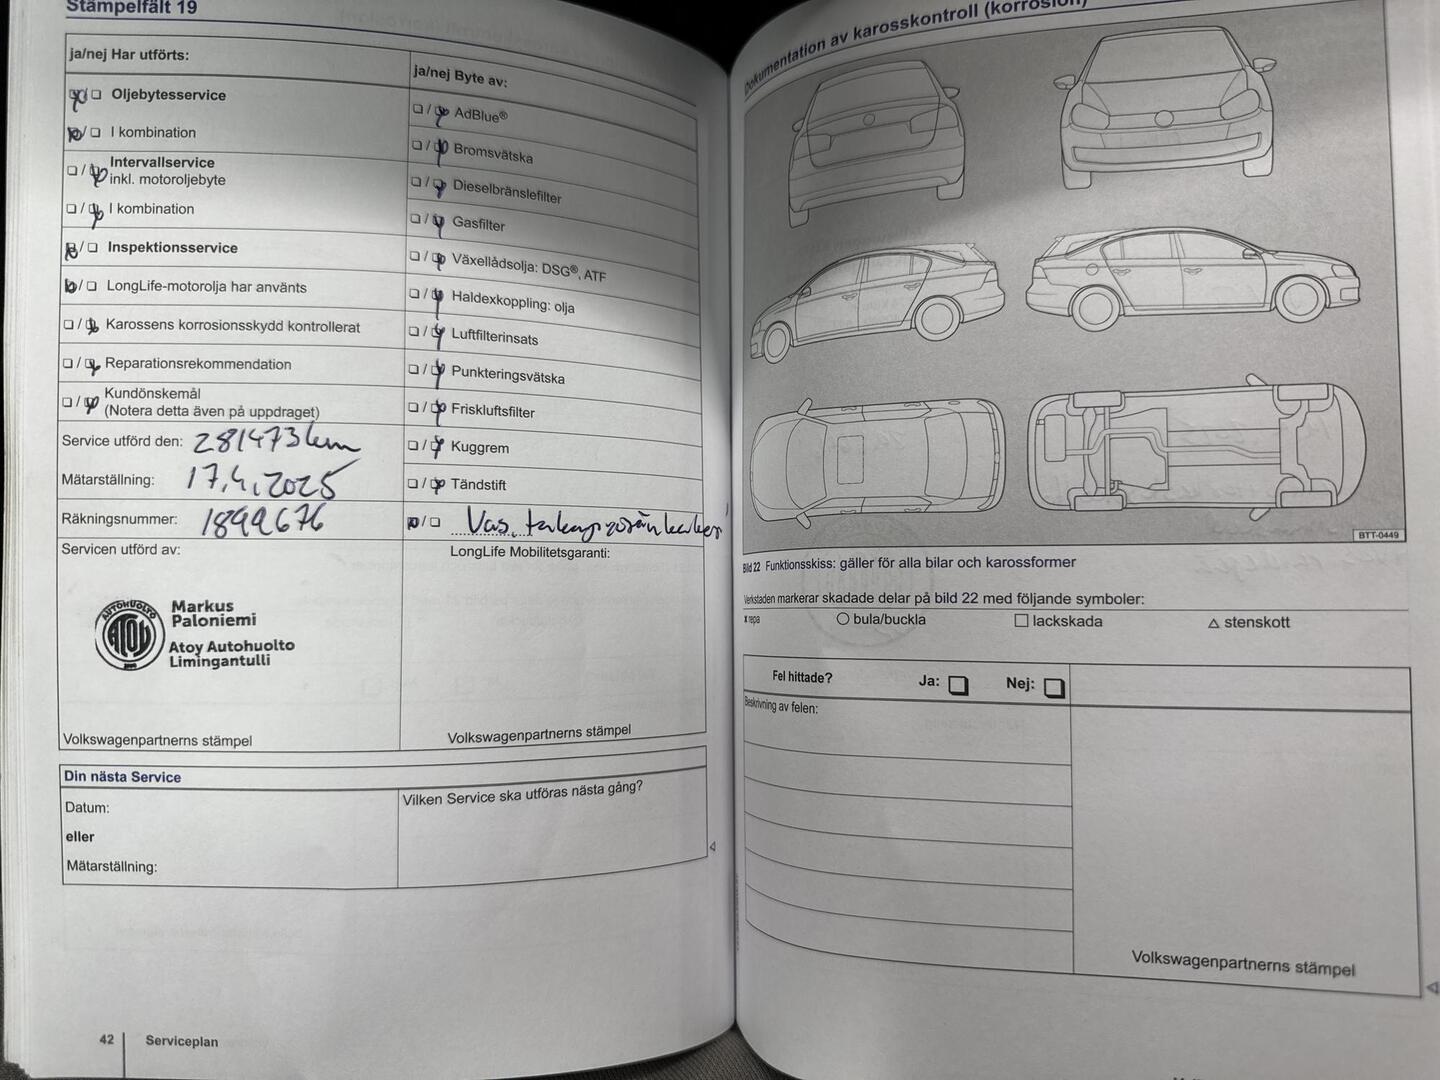 Stämpelfält 19
ja/nej Har utförts:
❏/❏ Oljebytesservice
❏/❏ I kombination
❏/❏ Intervallservice
inkl. motoroljebyte
❏/❏ I kombination
❏/❏ Inspektionsservice
❏/❏ LongLife-motorolja har använts
❏/❏ Karossens korrosionsskydd kontrollerat
❏/❏ Reparationsrekommendation
❏/❏ Kundönskemål
(Notera detta även på uppdraget)
Service utförd den: 281473km
Mätarställning: 17.4.2025
Räkningsnummer: 1899676
Servicen utförd av:
AUTOHUOLTO
ATOY
Markus
Paloniemi
Atoy Autohuolto
Limingantulli
Volkswagenpartnerns stämpel
ja/nej Byte av:
❏/❏ AdBlue®
❏/❏ Bromsvätska
❏/❏ Dieselbränslefilter
❏/❏ Gasfilter
❏/❏ Växellådsolja: DSG®, ATF
❏/❏ Haldexkoppling: olja
❏/❏ Luftfilterinsats
❏/❏ Punkteringsvätska
❏/❏ Friskluftsfilter
❏/❏ Kuggrem
❏/❏ Tändstift
❏/❏ Vas.
LongLife Mobilitetsgaranti:
Volkswagenpartnerns stämpel
Din nästa Service
Datum:
eller
Mätarställning:
Vilken Service ska utföras nästa gång?
42 Serviceplan
Dokumentation av karosskontroll (korrosion)
BTT-0449
Bild 22 Funktionsskiss: gäller för alla bilar och karossformer
Verkstaden markerar skadade delar på bild 22 med följande symboler:
x repa ○ bula/buckla □ lackskada △ stenskott
Fel hittade? Ja: ❏ Nej: ❏
Beskrivning av felen:
Volkswagenpartnerns stämpel